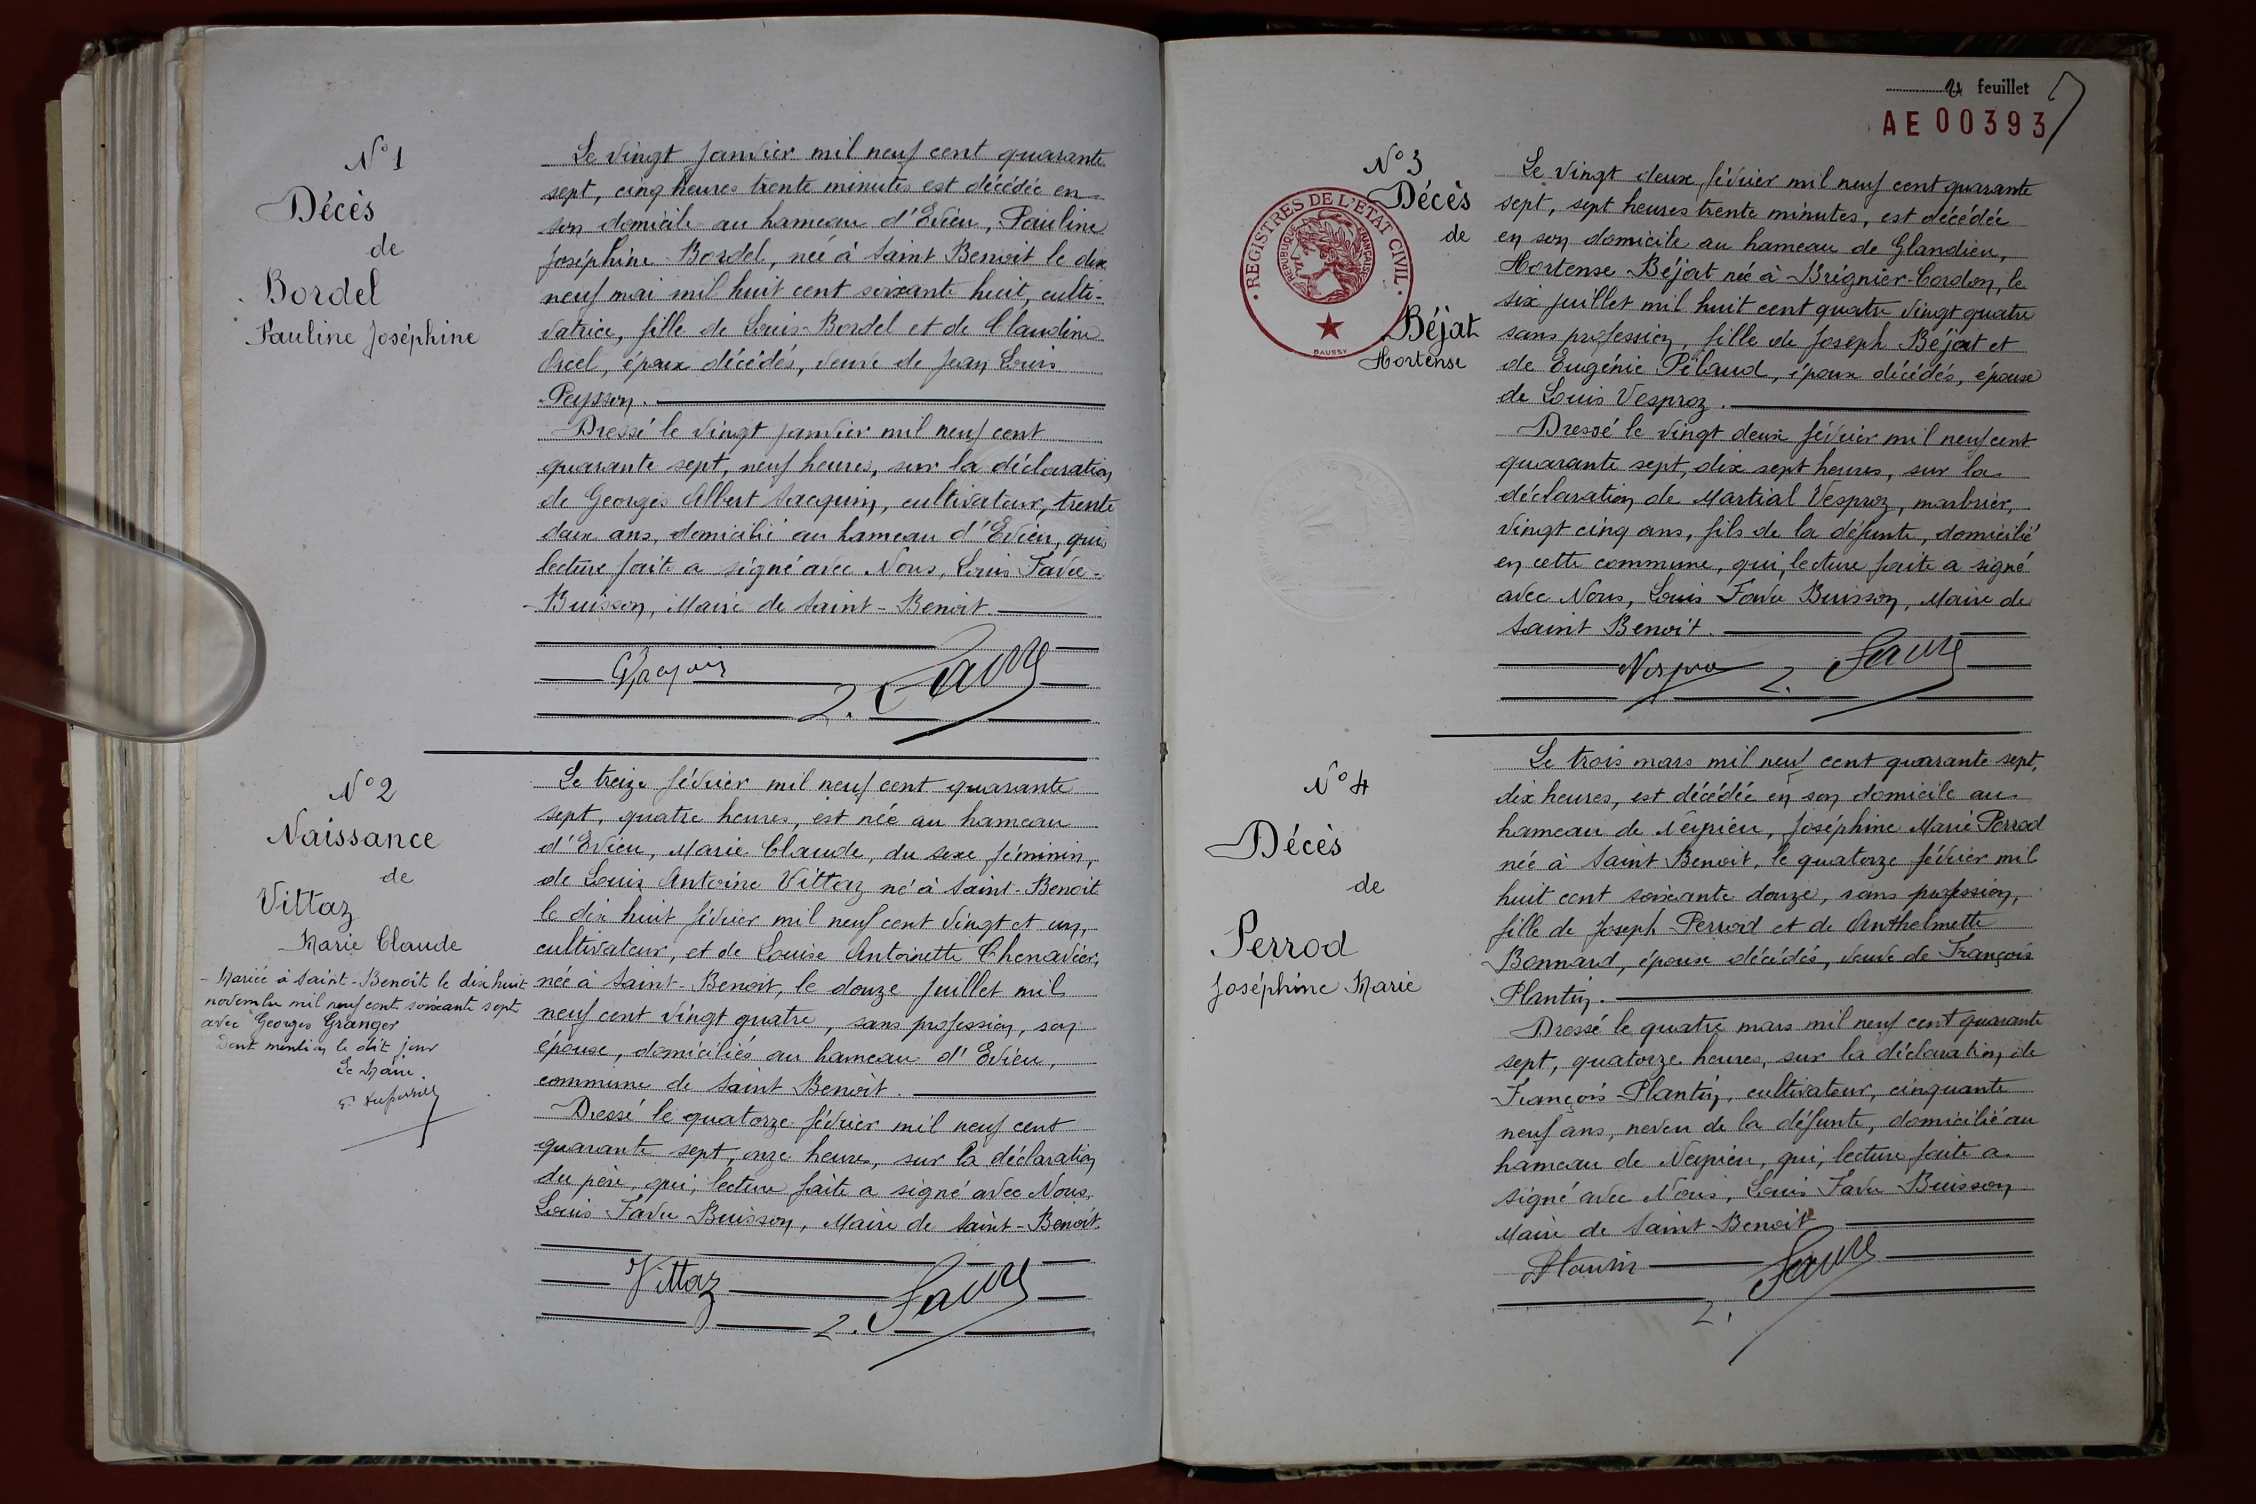 N° 1
Décès
de
Bordel
Pauline Joséphine
Le vingt janvier mil neuf cent quarante
sept, cinq heures trente minutes est décédée en
son domicile au hameau d'Evieu, Pauline
Joséphine Bordel, née à Saint Benoit le dix
neuf mai mil huit cent soixante huit, culti-
vatrice, fille de Louis Bordel et de Claudine
Orcel, époux décédés, veuve de Jean Louis
Peysson.
Dressé le vingt janvier mil neuf cent
quarante sept, neuf heures, sur la déclaration
de Georges Albert Jacquin, cultivateur, trente
deux ans, domicilié au hameau d'Evieu, qui
lecture faite a signé avec Nous, Louis Favre-
Buisson, Maire de Saint-Benoit.
L. Favre
N° 2
Naissance
de
Vittaz
Marie Claude
Mariée à Saint-Benoît le dix huit
novembre mil neuf cent soixante sept
avec Georges Granger
Dont mention le dit jour
Le Maire.
Le treize février mil neuf cent quarante
sept, quatre heures, est née au hameau
d'Evieu, Marie Claude, du sexe féminin,
de Louis Antoine Vittaz né à Saint-Benoit
le dix huit février mil neuf cent vingt et un,
cultivateur, et de Louise Antoinette Chenavier,
née à Saint-Benoit, le douze juillet mil
neuf cent vingt quatre, sans profession, son
épouse, domiciliés au hameau d'Evieu,
commune de Saint Benoit.
Dressé le quatorze février mil neuf cent
quarante sept, onze heures, sur la déclaration
du père, qui, lecture faite a signé avec Nous,
Louis Favre Buisson, Maire de Saint-Benoit.
Vittaz L. Favre
2 feuillet
AE 00393
7
N° 3
Décès
de
Béjat
Hortense
REGISTRES DE L'ETAT CIVIL
REPUBLIQUE FRANÇAISE
DAUSSY
Le vingt deux février mil neuf cent quarante
sept, sept heures trente minutes, est décédée
en son domicile au hameau de Glandieu,
Hortense Béjat née à Brégnier-Cordon, le
six juillet mil huit cent quatre vingt quatre
sans profession, fille de Joseph Béjat et
de Eugénie Pélaud, époux décédés, épouse
de Louis Vesproz.
Dressé le vingt deux février mil neuf cent
quarante sept, dix sept heures, sur la
déclaration de Martial Vesproz, marbrier,
vingt cinq ans, fils de la défunte, domicilié
en cette commune, qui, lecture faite a signé
avec Nous, Louis Favre Buisson, Maire de
Saint Benoit.
L. Favre
N° 4
Décès
de
Perrod
Joséphine Marie
Le trois mars mil neuf cent quarante sept,
dix heures, est décédée en son domicile au
hameau de Neyrieu, Joséphine Marie Perrod
née à Saint Benoit, le quatorze février mil
huit cent soixante douze, sans profession,
fille de Joseph Perrod et de Anthelmette
Bonnard, épouse décédés, veuve de François
Plantin.
Dressé le quatre mars mil neuf cent quarante
sept, quatorze heures, sur la déclaration de
François Plantin, cultivateur, cinquante
neuf ans, neveu de la défunte, domicilié au
hameau de Neyrieu, qui, lecture faite a
signé avec Nous, Louis Favre Buisson
Maire de Saint-Benoit
Plantin L. Favre